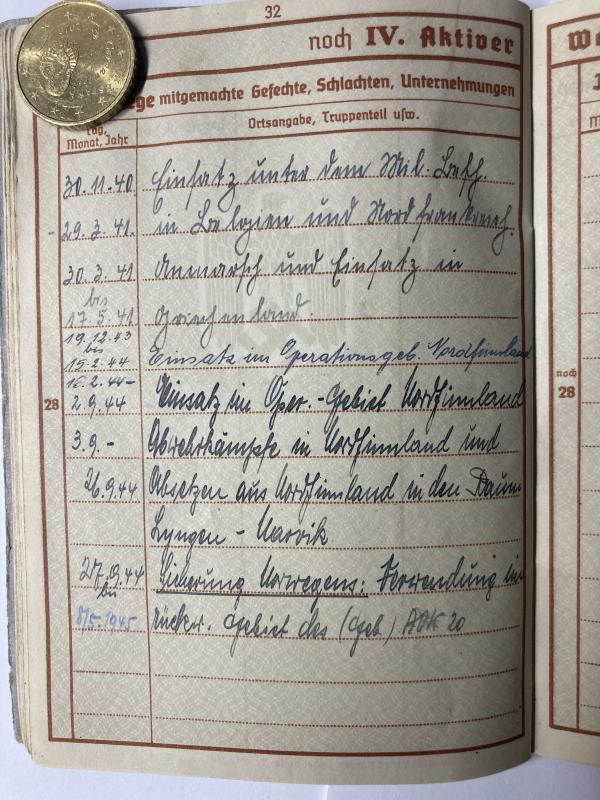 32
noch IV. Aktiver
ege mitgemachte Gefechte, Schlachten, Unternehmungen
Tag, Monat, Jahr
Ortsangabe, Truppenteil usw.
30.11.40 Einsatz unter dem Mil. Befh.
- 29.3.41. in Belgien und Nordfrankreich.
30.3.41 Anmarsch und Einsatz in
bis
17.5.41 Griechenland.
19.12.43
bis
15.2.44 Einsatz im Operationsgeb. Nordfinnland
16.2.44-
28 2.9.44 Einsatz im Oper.-Gebiet Nordfinnland
3.9.- Abwehrkämpfe in Nordfinnland und
26.9.44 Absetzen aus Nordfinnland in den Raum
Lyngen - Narvik
27.9.44 Sicherung Norwegens: Verwendung im
bis
8/5.1945 rückw. Gebiet des (Geb) AOK 20
noch
28